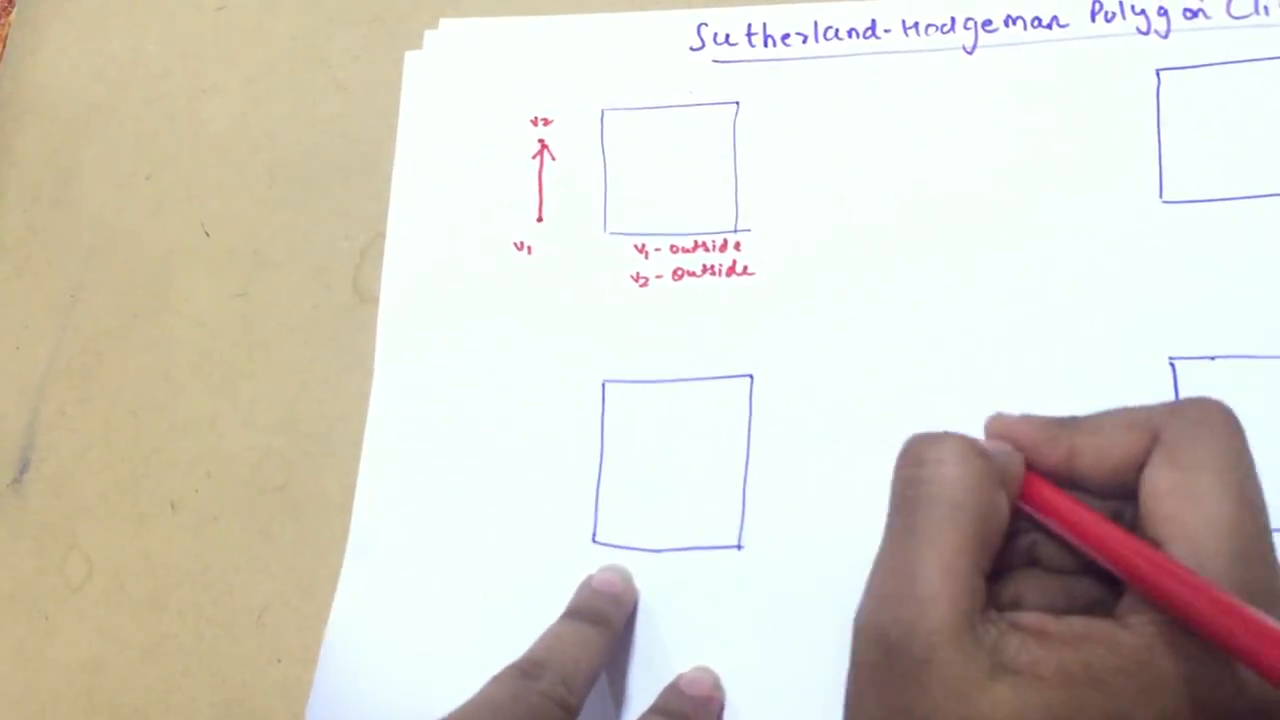 Sutherland-Hodgeman Polygon Cli
v2
v1
v1 - outside
v2 - outside